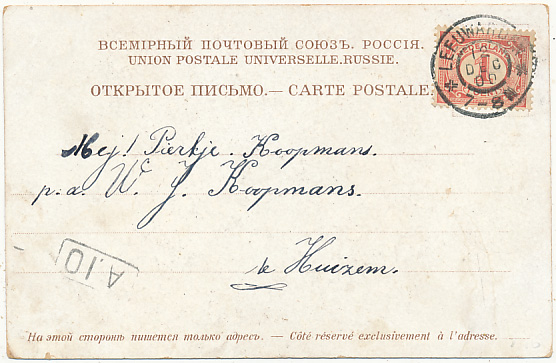 ВСЕМІРНЫЙ ПОЧТОВЫЙ СОЮЗЪ. РОССІЯ.
UNION POSTALE UNIVERSELLE. RUSSIE.
ОТКРЫТОЕ ПИСЬМО. — CARTE POSTALE.
LEEUWARDEN
DEC
7-8N
NEDERLAND
1
CENT
Mej! Pietje Koopmans.
p.a. W. J. Koopmans.
te Huizem.
A.10
На этой сторонѣ пишется только адресъ. — Côté réservé exclusivement à l'adresse.